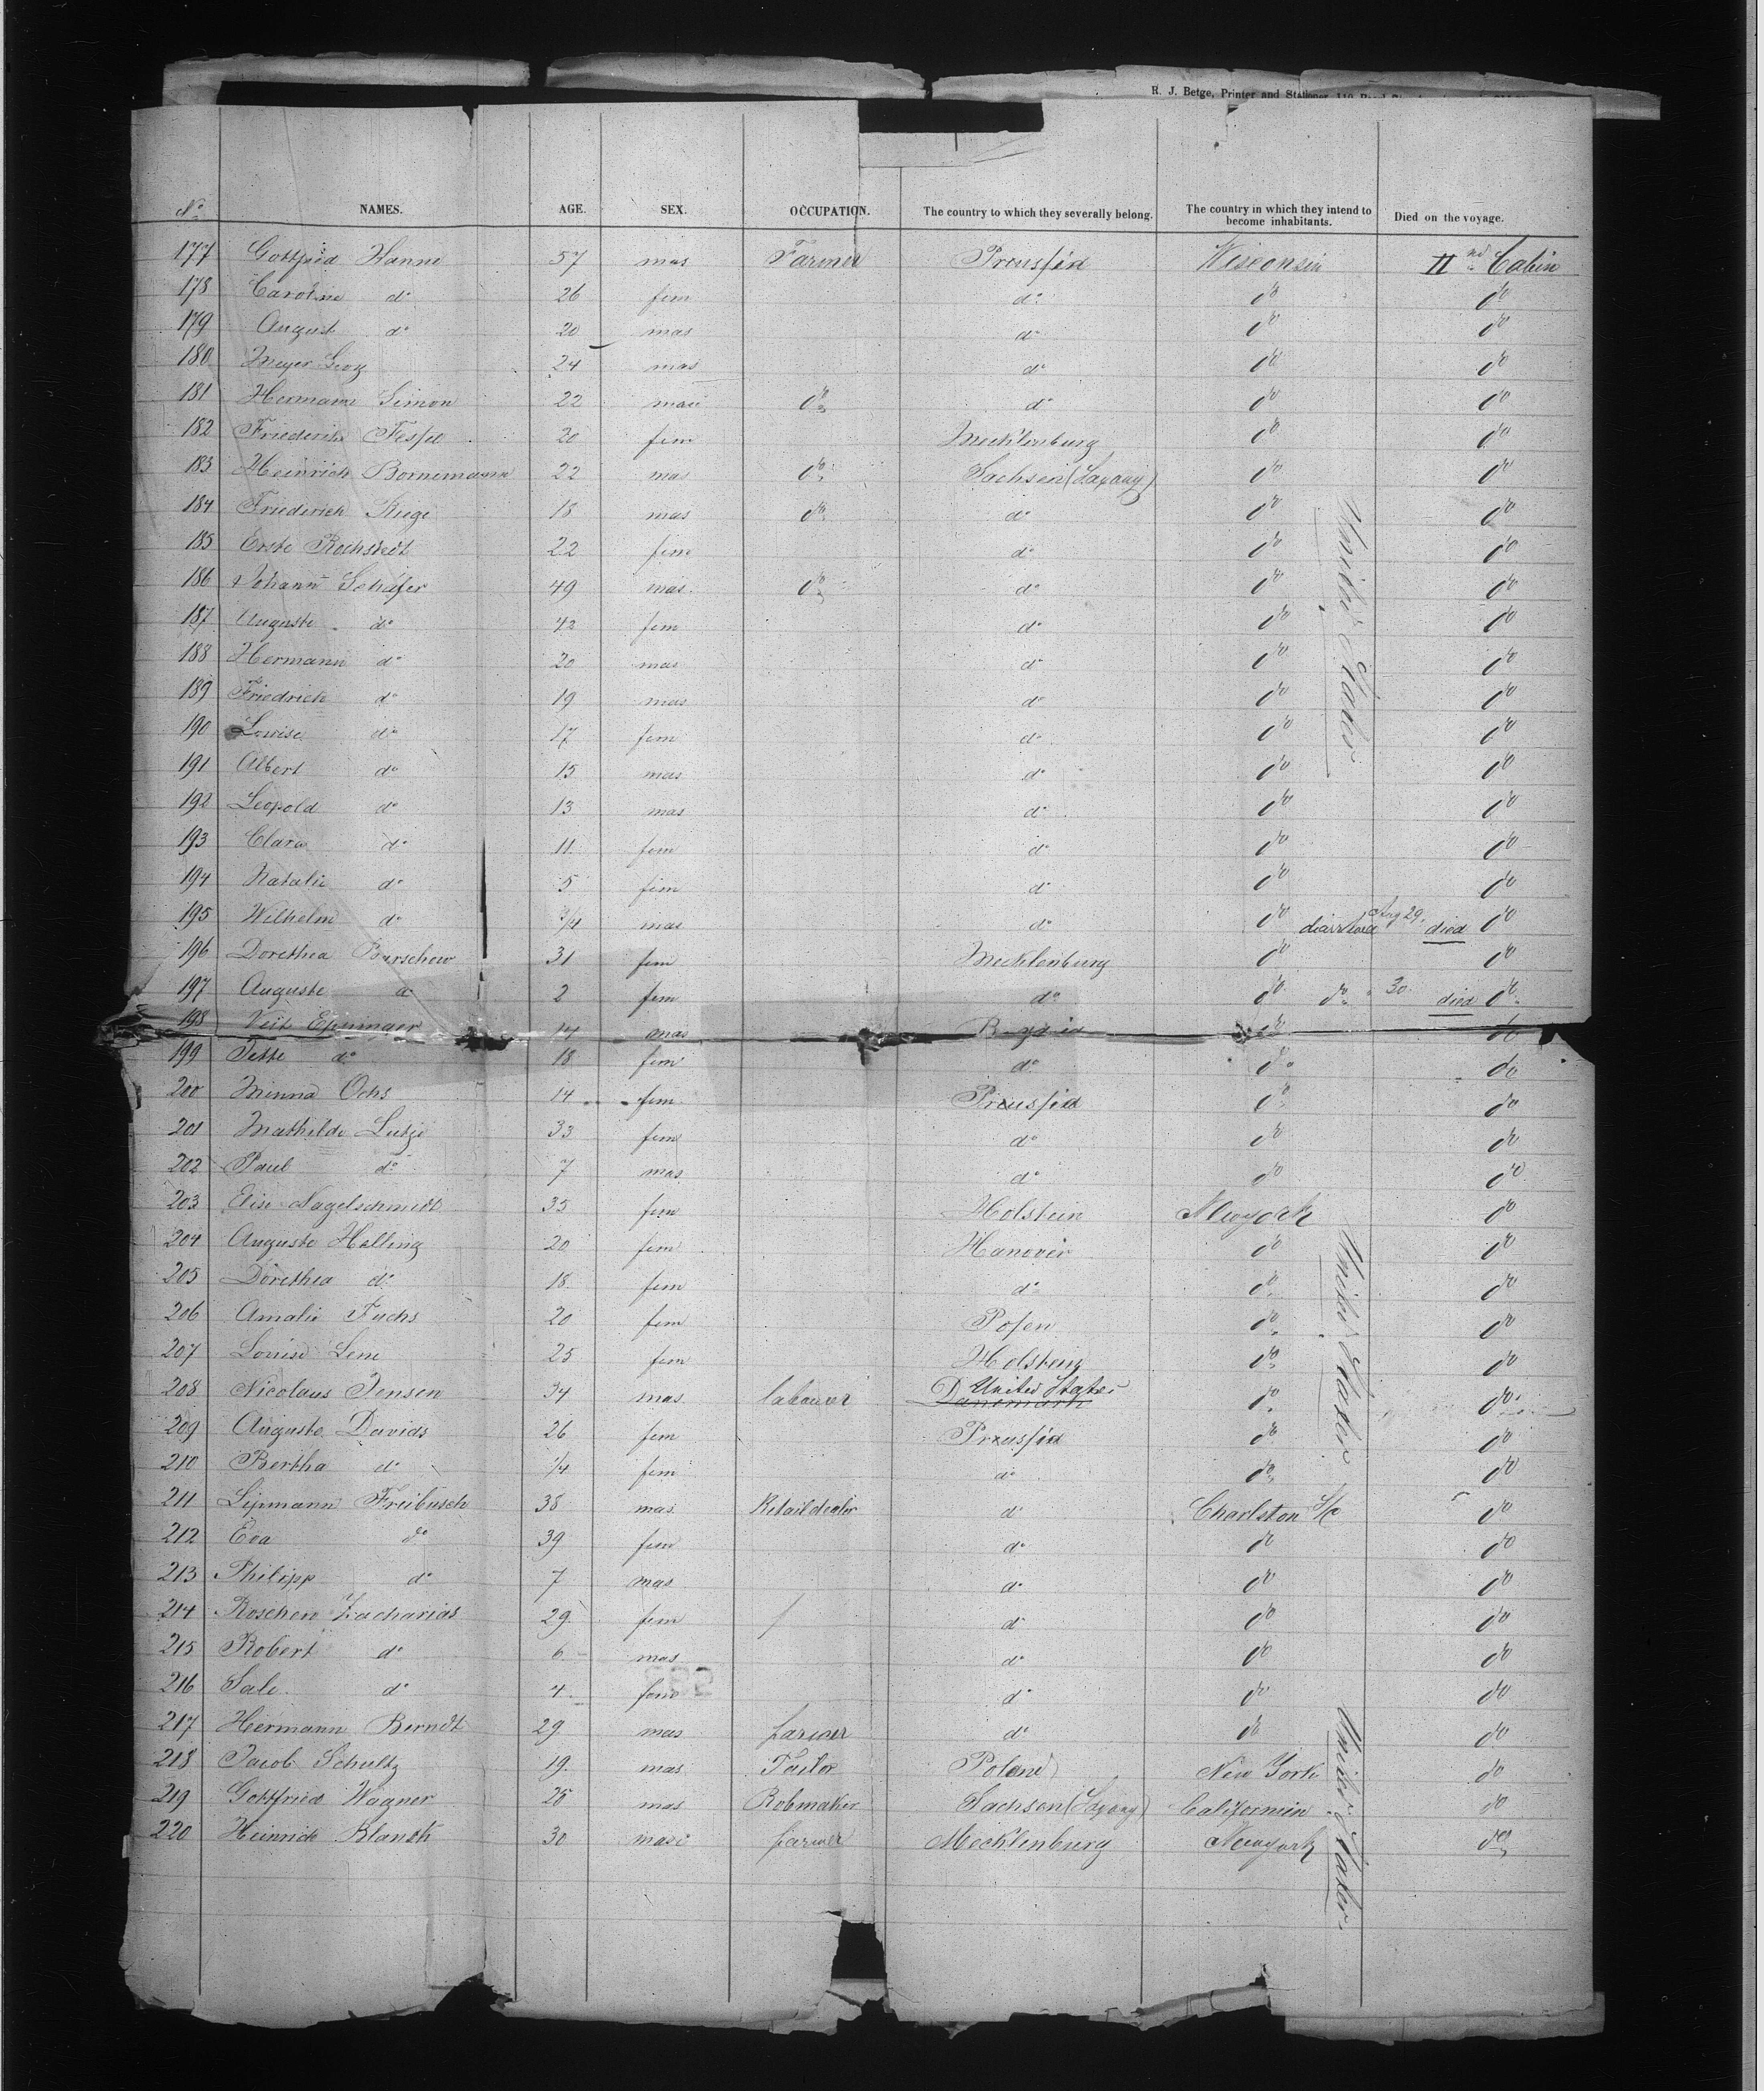 R. J. Betge, Printer and Stationer
No NAMES. AGE. SEX. OCCUPATION. The country to which they severally belong. The country in which they intend to become inhabitants. Died on the voyage.
177 Gottfried Hanne 57 mas Farmer Preussia Wisconsin IInd Cabin
178 Caroline do 26 fem do do do
179 August do 20 mas do do do
180 Meyer 24 mas do do do
181 Hermann Simon 22 mas do do do do
182 Friederike 20 fem Mecklenburg do do
183 Heinrich Bornemann 22 mas do Sachsen (Saxony) do do
184 Friederich 18 mas do do do do
185 Rochstedt 22 fem do do do
186 Johann Schäfer 49 mas do do do do
187 Auguste do 42 fem do do do
188 Hermann do 20 mas do do do
189 Friedrich do 19 mas do do do
190 Louise do 17 fem do do do
191 Albert do 15 mas do do do
192 Leopold do 13 mas do do do
193 Clara do 11 fem do do do
194 Natalie do 5 fem do do do
195 Wilhelm do 3/4 mas do do Aug 29. died do
196 Dorethea Burschow 31 fem Mecklenburg do do
197 Auguste do 2 fem do do do " 30. died do
198 Veit Eppinger 14 mas do do
199 do 18 fem do do do
200 Minna Ochs 14 fem Preussia do do
201 Mathilde Lutze 33 fem do do do
202 Paul do 7 mas do do do
203 Elise Nagelschmidt 35 fem Holstein Newyork do
204 Auguste Helling 20 fem Hanover do do
205 Dorethea do 18 fem do do do
206 Amalie Fuchs 20 fem Posen do do
207 Louise Lene 25 fem Holstein do do
208 Nicolaus Jensen 34 mas labourer Danemark United States do do
209 Auguste Davids 26 fem Preussia do do
210 Bertha do 3/4 fem do do do
211 Lipmann Freibusch 38 mas Retail dealer do Charlston S/C do
212 Eva do 39 fem do do do
213 Philipp do 7 mas do do do
214 Roschen Zacharias 29 fem / do do do
215 Robert do 6 mas do do do
216 Sale do 4 fem do do do
217 Hermann Berndt 29 mas farmer do do do
218 Jacob Schultz 19 mas Tailor Poland New York do
219 Gottfried Wagner 25 mas Robmaker Sachsen (Saxony) Californien do
220 Heinrich Blanck 30 masc farmer Mecklenburg Newyork do
United States
United States
United States